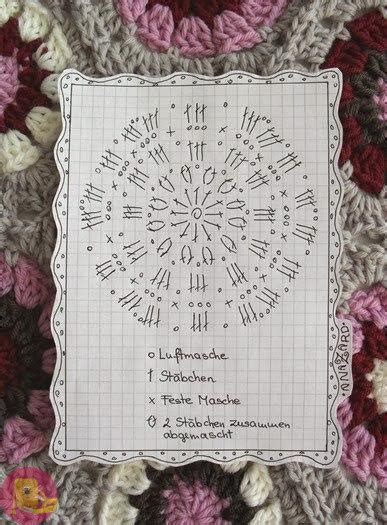 o Luftmasche
† Stäbchen
x Feste Masche
0 2 Stäbchen zusammen
abgemascht
ANNAZARD